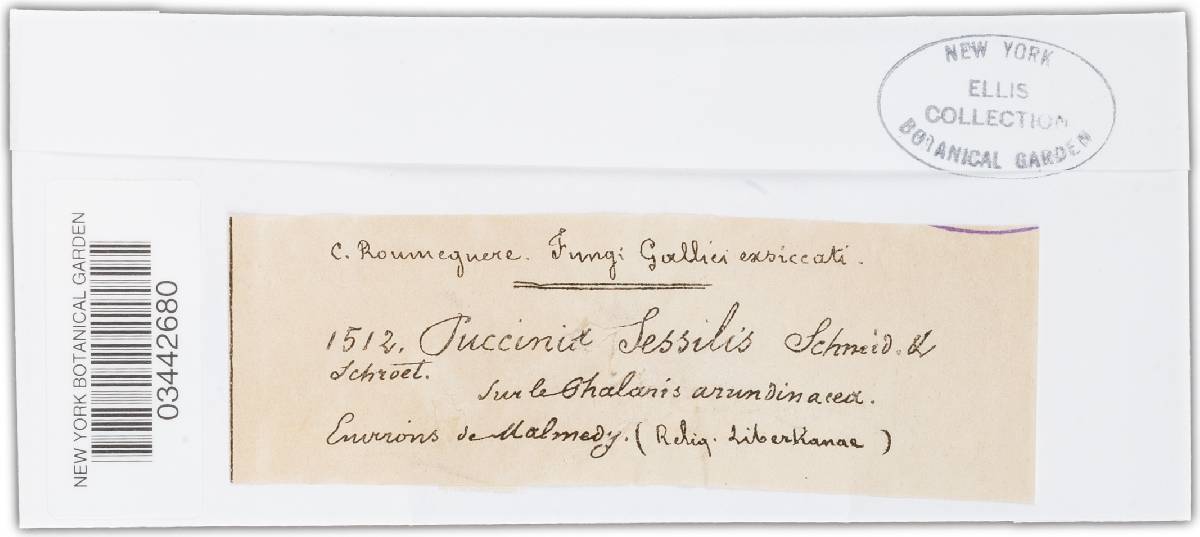 NEW YORK
ELLIS
COLLECTION
BOTANICAL GARDEN
NEW YORK BOTANICAL GARDEN
03442680
C. Roumeguere. Fungi Gallici exsiccati.
1512. Puccinia Sessilis Schneid. &
Schroet.
sur le Phalaris arundinacea.
Environs de Malmedy. (Reliq. Libertianae)